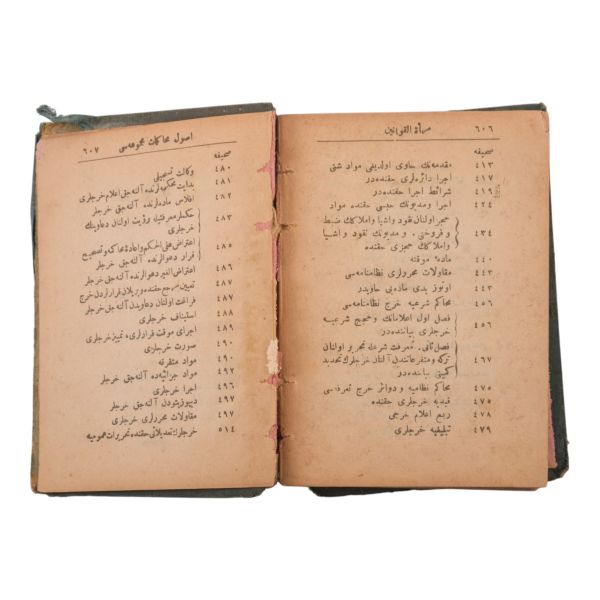 ٦٠٦ مرآة القوانين
صحيفه
٤١٣ مقدمه‌نك حاوى اولديغى مواد شتى
٤١٧ اجرا دائره‌لرى حقنده‌در
٤١٩ شرائط اجرا حقنده‌در
٤٢٤ اجرا ومديونك حبسى حقنده مواد
حجز اولنان نقود واشيا واملاكك ضبط
٤٣٤ وفروختى . ومديونك نقود واشيا
واملاكك حجزى حقنده
٤٤٠ ماده‌ء موقته
٤٤٣ مقاولات محررلرى نظامنامه‌سى
٤٤٣ اوتوز يدى ماده‌يى حاويدر
٤٥٦ محاكم شرعيه خرج نظامنامه‌سى
٤٥٦ فصل اول اعلاماتك وحجج شرعيه
خرجلرى بياننده‌در
فصل ثانى . معرفت شرعله تحرير اولنان
٤٦٧ تركه ومتفرعاتندن آلنان خرجلرك تحديد
كميتى بياننده‌در
٤٧٥ محاكم نظاميه ودوائر خرج تعرفه‌سى
٤٧٥ قيديه خرجلرى حقنده
٤٧٨ ربع اعلام خرجى
٤٧٩ تبليغيه خرجلرى
اصول محاكمات مجموعه‌سى ٦٠٧
صحيفه
٤٨٠ وكالت تسجيلى
٤٨١ بدايت محكمه‌لرنده آلنه‌جق اعلام خرجلرى
٤٨٢ افلاس ماده‌لرنده آلنه‌جق خرجلر
٤٨٣ حكملر معرفتيله رؤيت اولنان دعاوينك
خرجلرى
٤٨٥ اعتراض على الحكم واعادهٔ محاكمه وتصحيح
قرار دعوالرنده آلنه‌جق خرجلر
٤٨٦ اعتراض الغير دعوالرنده آلنه‌جق خرجلر
٤٨٧ تعيين مرجع حقنده ويريلان قرارلردن خرج
٤٨٧ فراغت اولنان دعاويدن آلنه‌جق خرجلر
٤٨٨ استيناف خرجلرى
٤٨٩ اجراى موقت قرارلرى، تمييز خرجلرى
٤٩٠ صورت خرجلرى
٤٩٠ مواد متفرقه
٤٩٢ مواد جزائيه‌ده آلنه‌جق خرجلر
٤٩٦ اجرا خرجلرى
٤٩٧ ديپوزيتودن آلنه‌جق خرجلر
٤٩٧ مقاولات محررلرى خرجلرى
٥١٤ خرجلرك تعديلاتى حقنده تحريرات عموميه